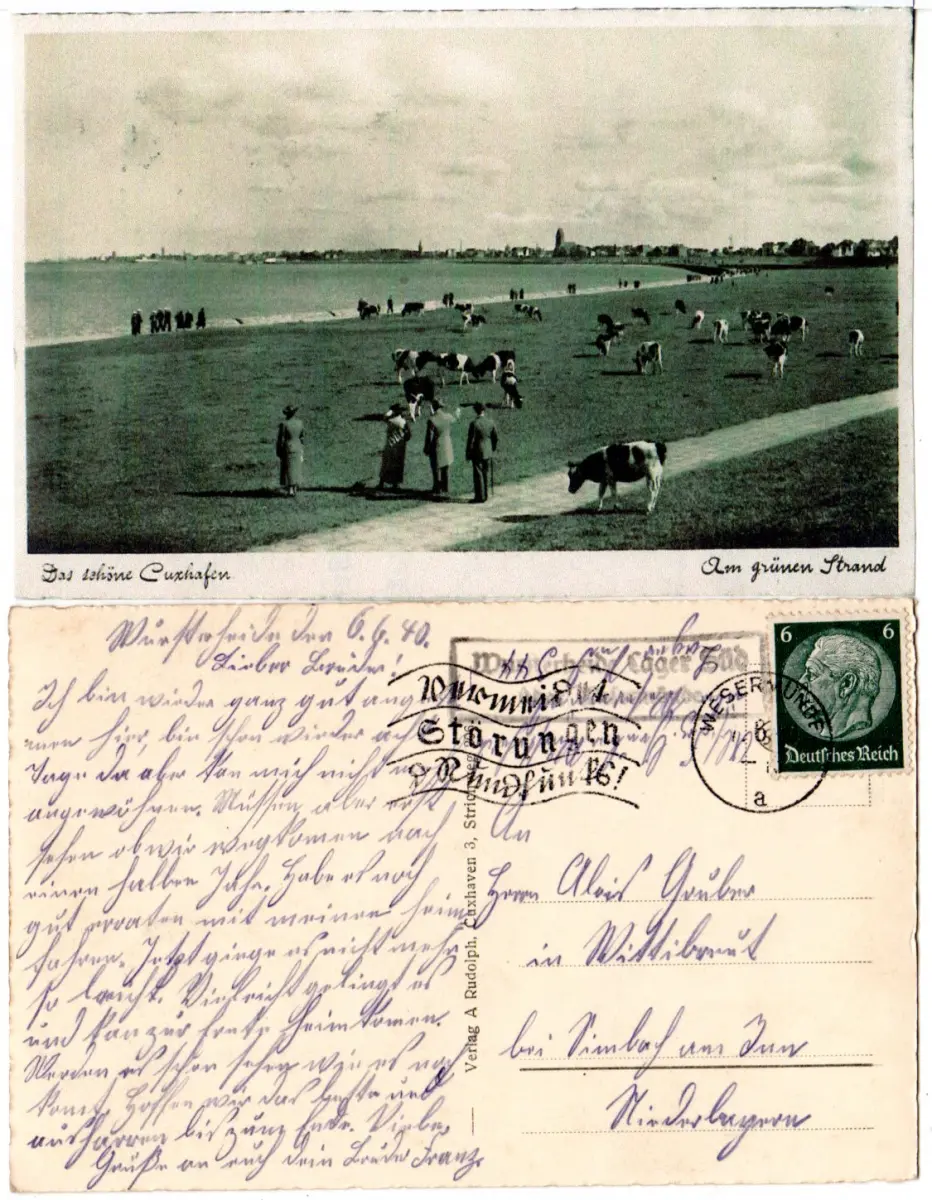 Das schöne Cuxhafen.
Am grünen Strand
Wursterheide den 6.6.40.
Lieber Bruder!
Ich bin wieder ganz gut ange
men hier, bin schon wieder acht
Tage da aber kan mich nicht
angewöhnen. Müssen aber erst
sehen ob wir wegkomen nach
einen halben Jahr. Habe es noch
gut erraten mit meinen heim
fahren. Jetzt ginge es nicht mehr
so leicht. Vielleicht gelingt es
und kan zur Ernte heimkomen.
Werden es schon sehen wie es noch
komt. Hoffen wir das beste und
ausharren bis zum Ende. Viele
Grüße an euch dein Bruder Franz
Wursterheide Lager Süd
Vermeidet
Störungen
d. Rundfunks!
WESERMÜNDE
a
6 6
Deutsches Reich
Verlag A Rudolph, Cuxhaven 3, Strich
An
Herrn Alois Gruber
in Wittibreut
bei Simbach am Inn
Niederbayern